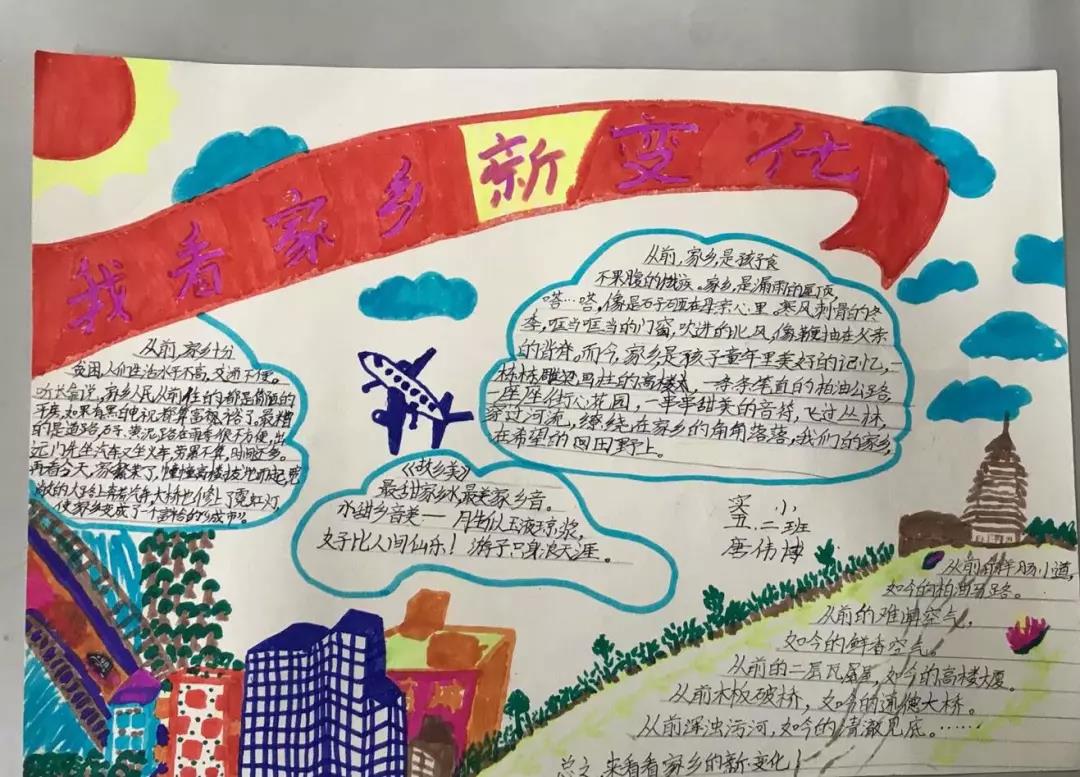 我看家乡新变化
从前,家乡十分
贫困,人们生活水平不高,交通不便。
听长辈说,家乡人民从前住的都是简陋的
平房,如果有黑白电视都算富裕了。最糟
的是道路石子、黄泥路在雨季很不方便,出
远门先坐汽车又坐火车,劳累不算,时间还多。
再看今天,家乡繁荣了,幢幢高楼拔地而起,宽
敞的大路上奔着汽车,大桥也修上了霓虹灯,
使家乡变成了一个富裕的“城市”。
从前,家乡,是孩子食
不果腹的饿孩。家乡,是漏雨的屋顶,
嗒…嗒。像是石子砸在母亲心里。寒风刺骨的冬
季,哐当哐当的门窗,吹进的北风,像鞭抽在父亲
的背脊。而今,家乡是孩子童年里美好的记忆,一
栋栋雕梁画柱的高楼大,一条条笔直的柏油公路,
一座座街心花园,一串串甜美的音符,飞过丛林,
穿过河流,缭绕在家乡的角角落落,我们的家乡,
在希望的田田野上。
《故乡美》
最甜家乡水,最美家乡音。
水甜乡音美——月牛似玉液琼浆,
女子比人间仙乐!游子只身浪天涯。
实 小
五.二班
唐伟博
从前的羊肠小道,
如今的柏油马路。
从前的难闻空气,
如今的鲜香空气。
从前的二层瓦屋,如今的高楼大厦。
从前木板破桥,如今的通德大桥。
从前浑浊污河,如今的清澈见底。……
总之,来看看家乡的新变化!